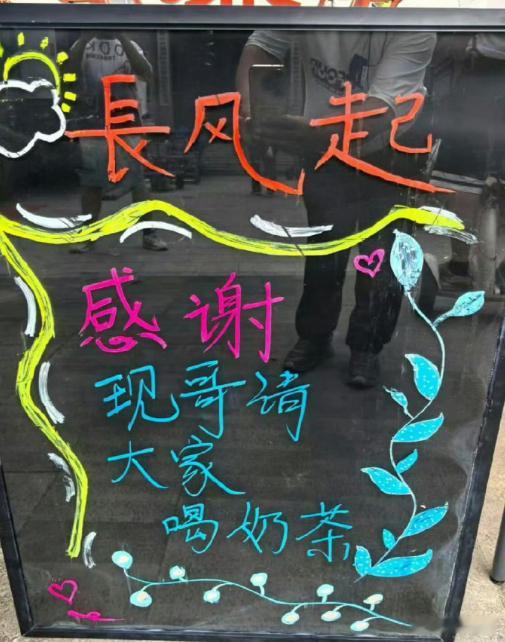 長风起
感谢
现哥请
大家
喝奶茶